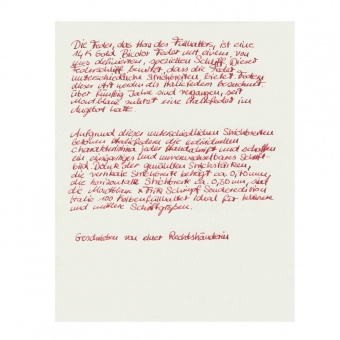 Die Feder, das Herz des Füllhalters, ist eine
14 K Gold Bicolor Feder mit einem, von
uns definierten, speziellen Schliff. Dieser
Federschliff bewirkt, dass die Feder
unterschiedliche Strichbreiten bietet. Federn
dieser Art werden als Italicfedern bezeichnet.
Über fünfzig Jahre sind vergangen, seit
Montblanc zuletzt eine Italicfeder im
Angebot hatte.
Aufgrund dieser unterschiedlichen Strichbreiten
betonen Italicfedern die individuellen
Charakteristika jeder Handschrift und schaffen
ein einzigartiges und unverwechselbares Schrift-
bild. Dank der gewählten Strichstärken,
die vertikale Strichbreite beträgt ca. 0,90 mm,
die horizontale Strichbreite ca. 0,50 mm, sind
die Montblanc x Fritz Schimpf Sonderedition
Italic 100 Kolbenfüllhalter ideal für kleinere
und mittlere Schriftgrößen.
Geschrieben von einer Rechtshänderin